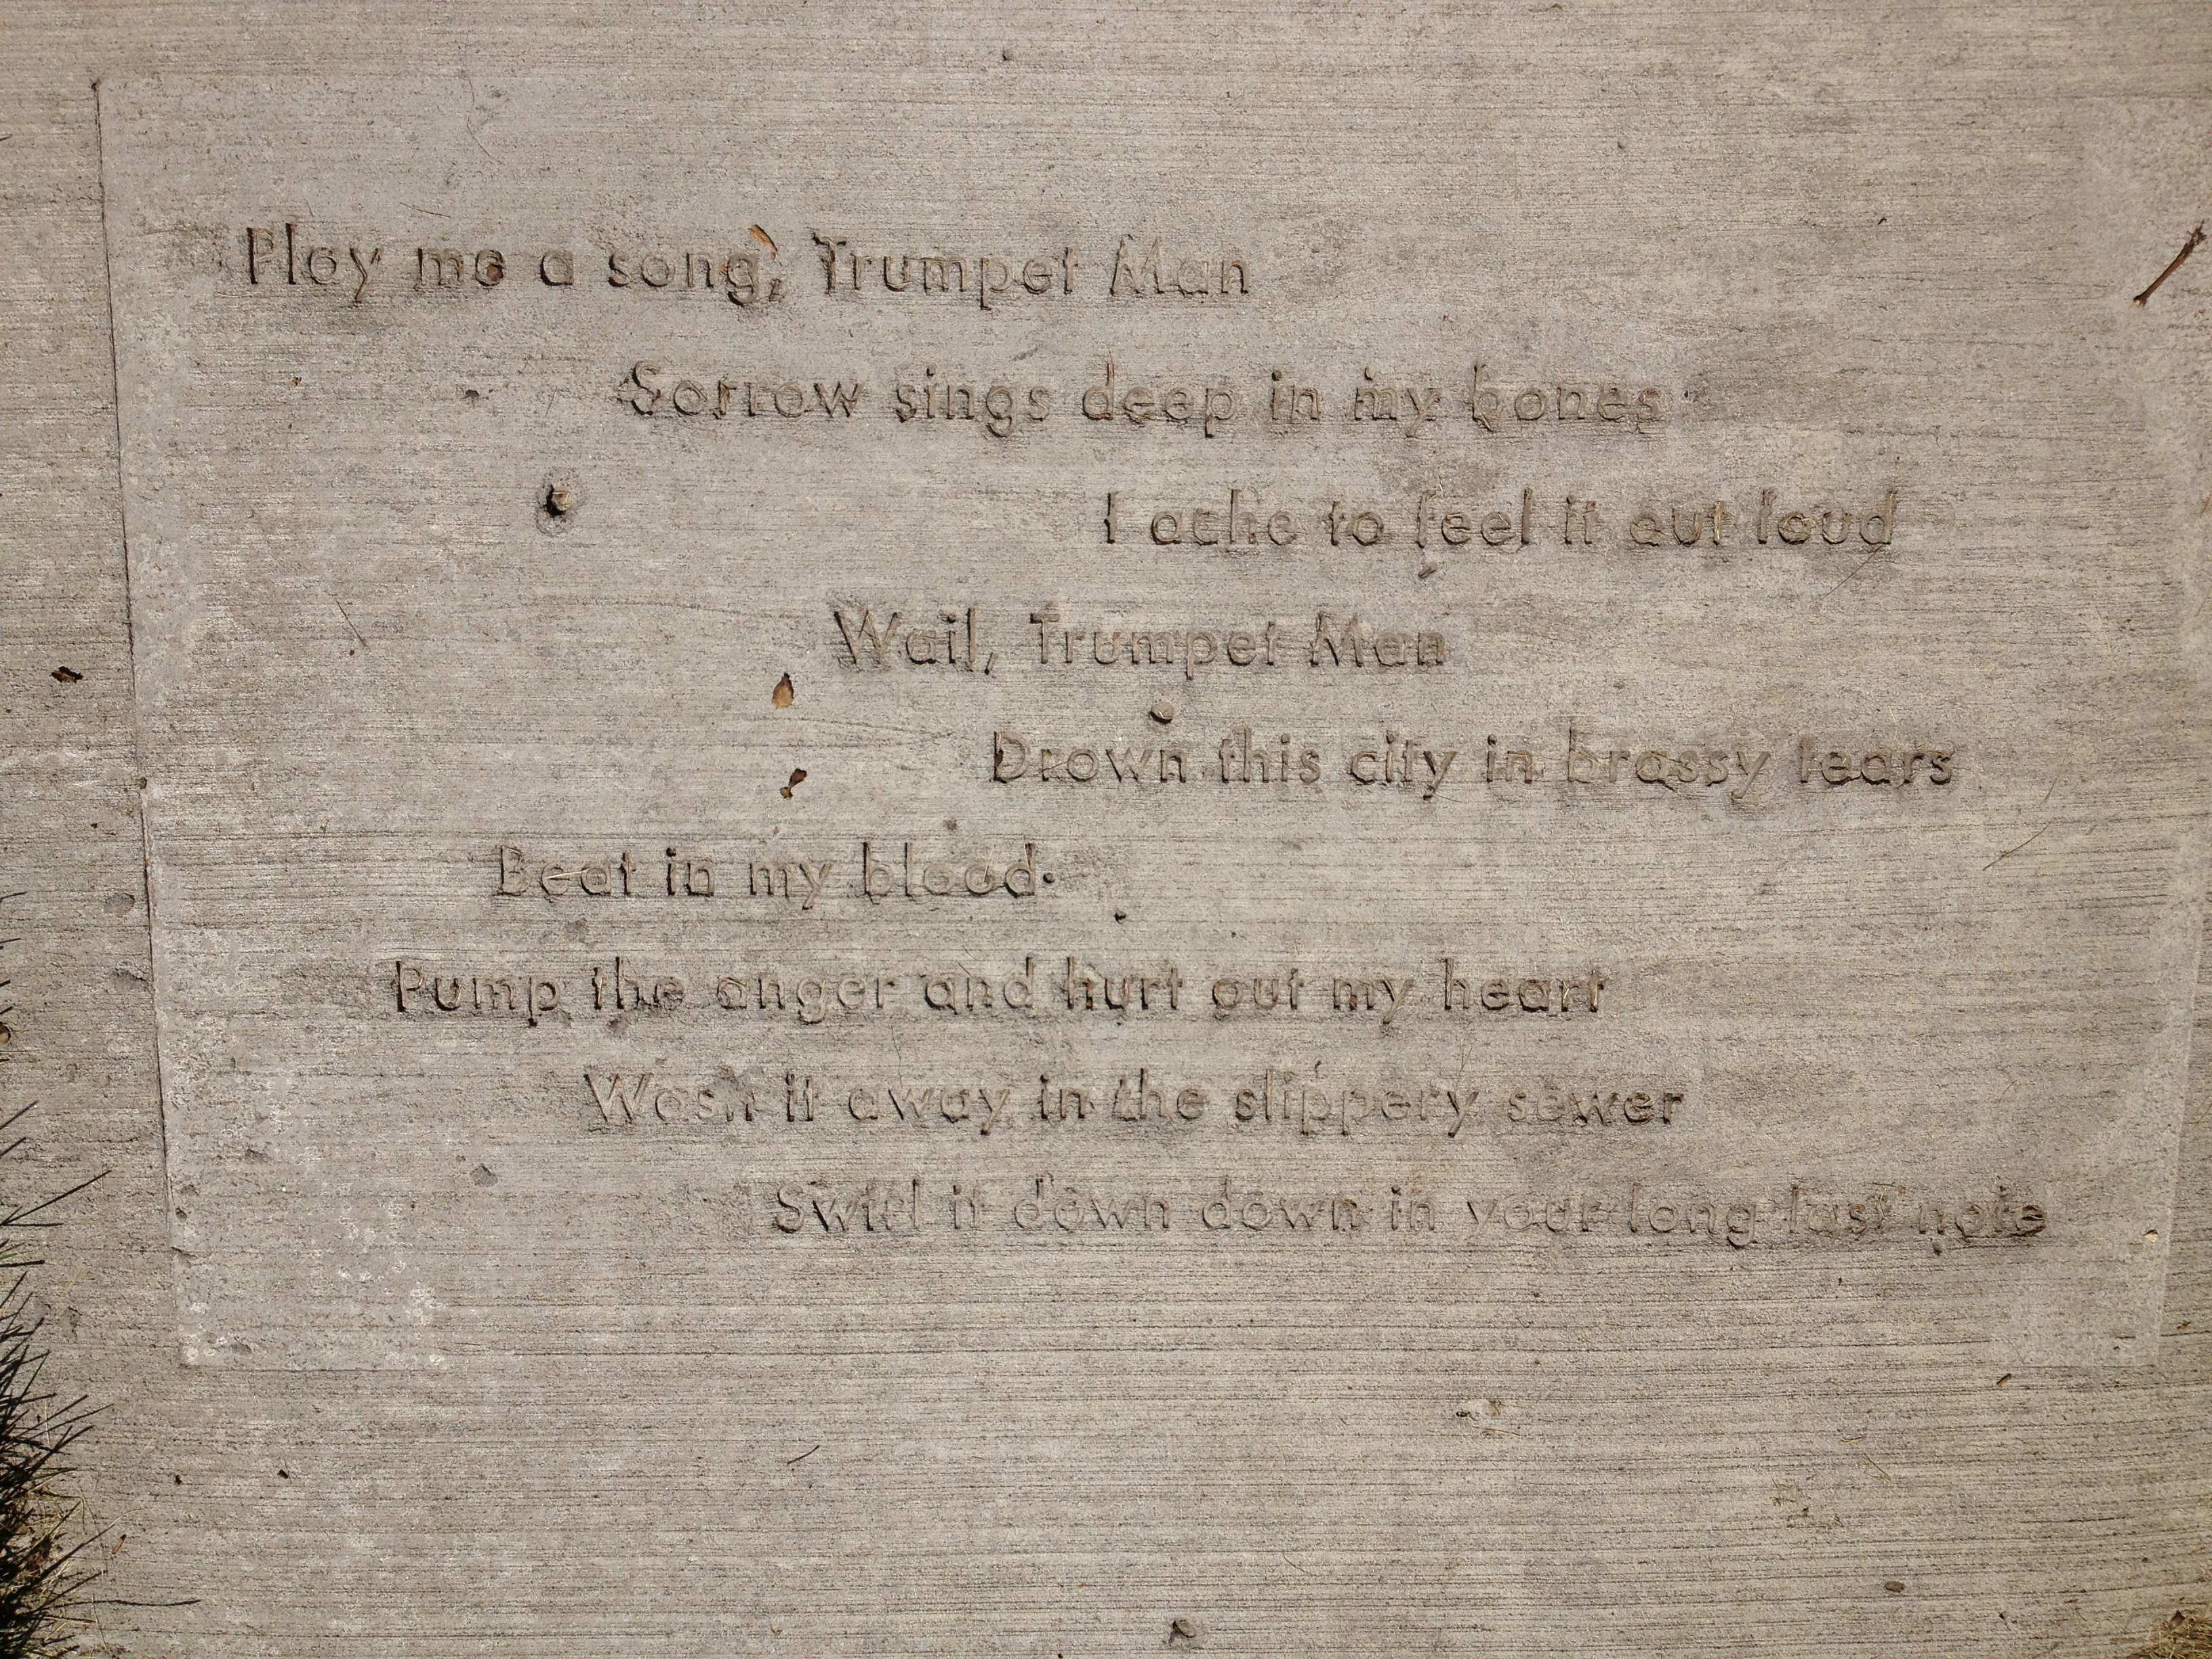 Play me a song, Trumpet Man
Sorrow sings deep in my bones
I ache to feel it out loud
Wail, Trumpet Man
Drown this city in brassy tears
Beat in my blood
Pump the anger and hurt out my heart
Wash it away in the slippery sewer
Swirl it down down in your long last note